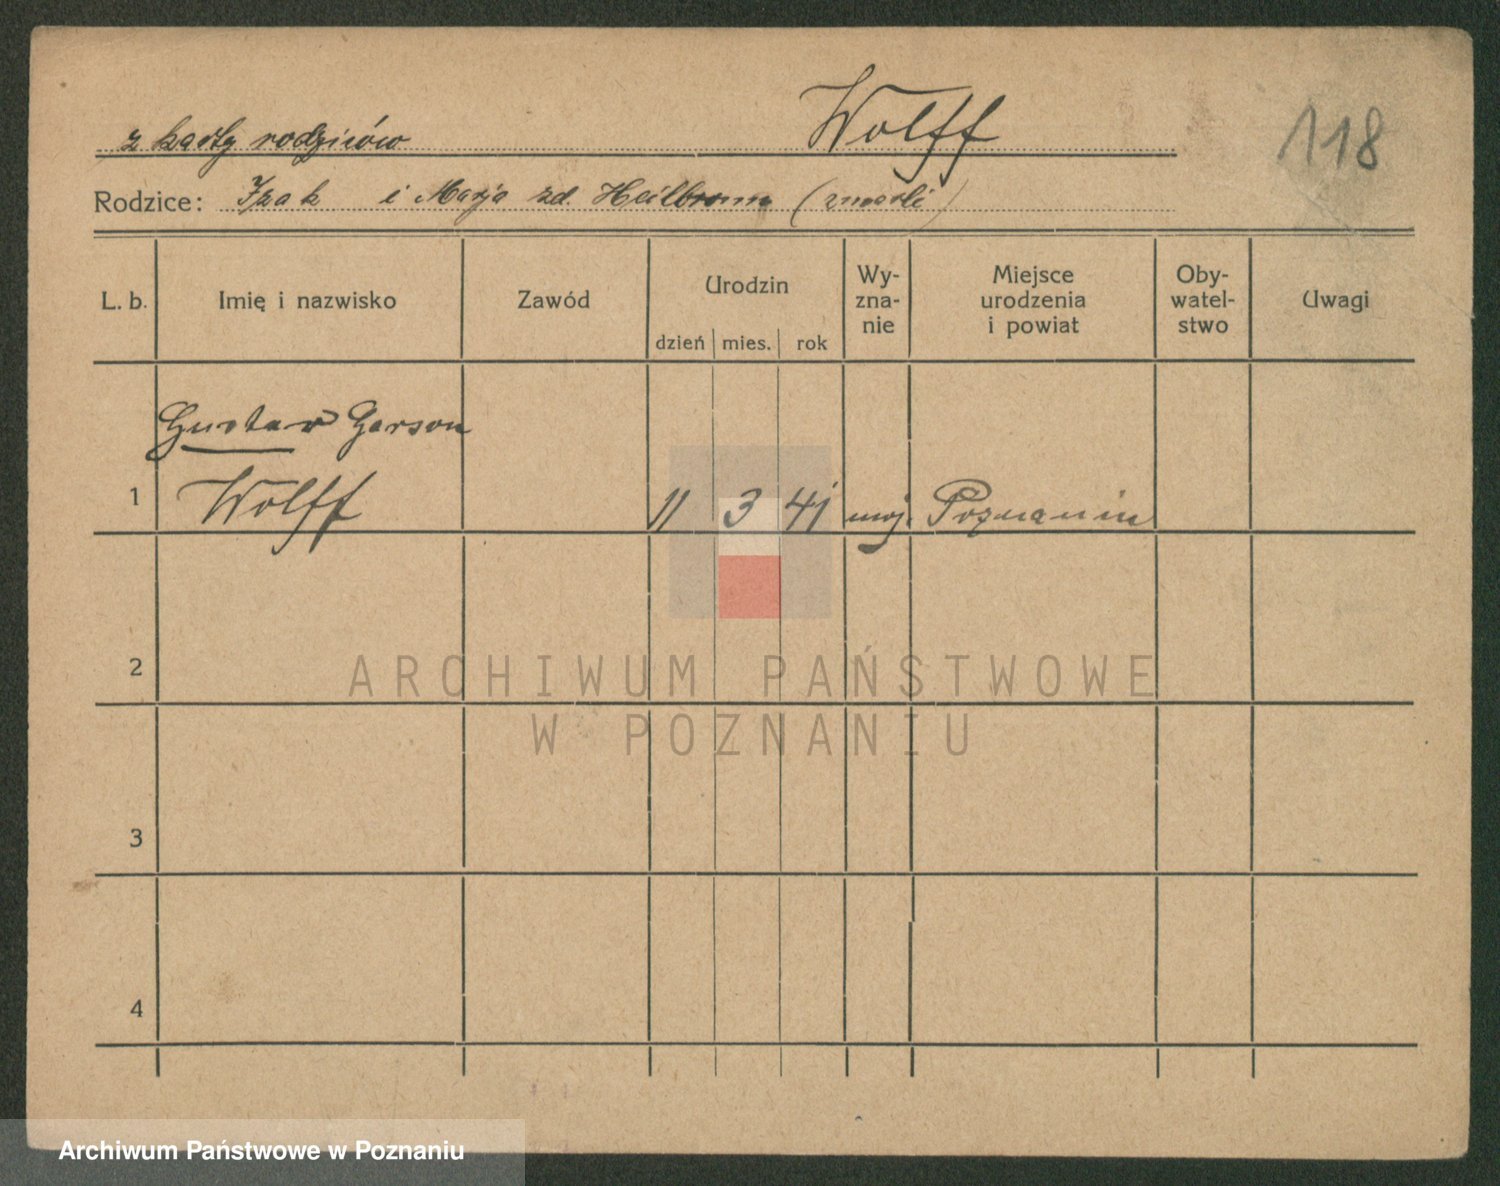 Wolff
118
z karty rodziców
Rodzice: Izak i Marja zd. Heilbronn (zmarli)
L. b. Imię i nazwisko Zawód Urodzin Wy-zna-nie Miejsce urodzenia i powiat Oby-watel-stwo Uwagi
dzień mies. rok
Gustav Gerson
1 Wolff 11 3 41 moj. Poznaniu
2
ARCHIWUM PAŃSTWOWE
W POZNANIU
3
4
Archiwum Państwowe w Poznaniu